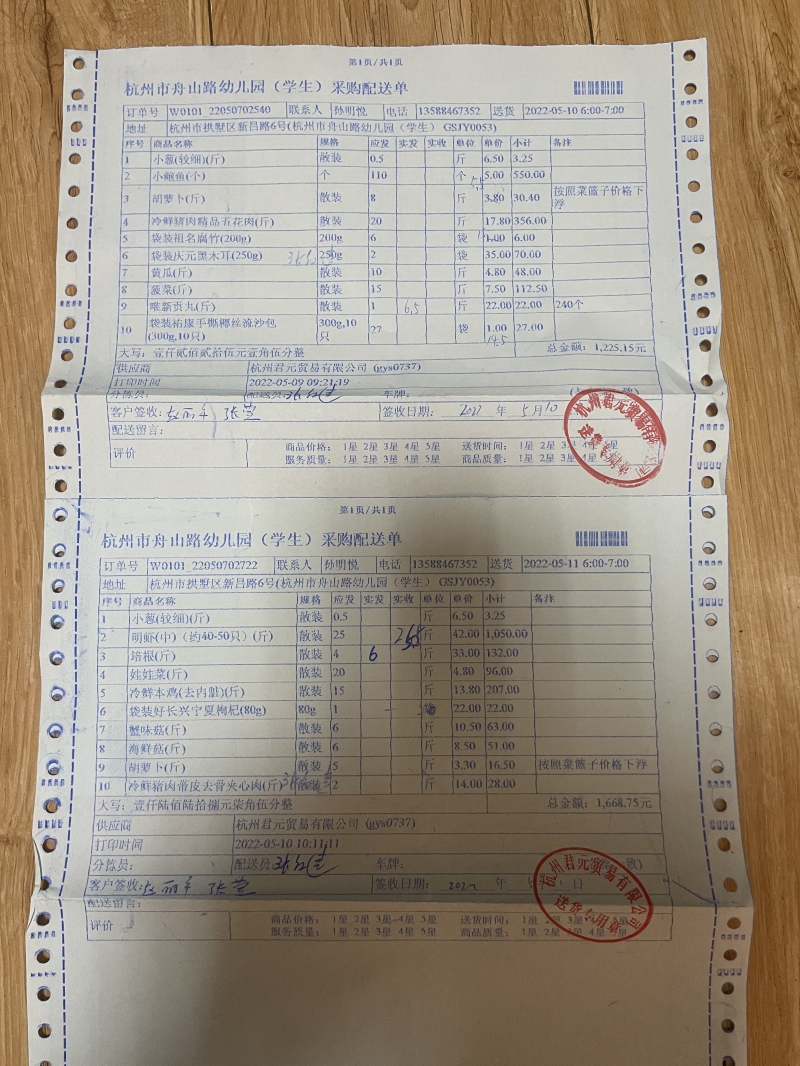 第1页/共1页
杭州市舟山路幼儿园（学生）采购配送单
订单号 W0101_22050702540 联系人 孙明悦 电话 13588467352 送货 2022-05-10 6:00-7:00
地址 杭州市拱墅区新昌路6号(杭州市舟山路幼儿园（学生）GSJY0053)
序号 商品名称 规格 应发 实发 实收 单位 单价 小计 备注
1 小葱(较细)(斤) 散装 0.5 斤 6.50 3.25
2 小鲍鱼(个) 个 110 个 5.00 550.00
5.5
3 胡萝卜(斤) 散装 8 斤 3.80 30.40 按照菜篮子价格下浮
4 冷鲜猪肉精品五花肉(斤) 散装 20 斤 17.80 356.00
5 袋装祖名腐竹(200g) 200g 6 袋 1.00 6.00
6 袋装庆元黑木耳(250g) 250g 2 袋 35.00 70.00
7 黄瓜(斤) 散装 10 斤 4.80 48.00
8 菠菜(斤) 散装 15 斤 7.50 112.50
9 唯新贡丸(斤) 散装 1 6.5 斤 22.00 22.00 240个
10 袋装祐康手撕椰丝流沙包(300g,10只) 300g,10只 27 袋 1.00 27.00
14.5
大写：壹仟贰佰贰拾伍元壹角伍分整 总金额：1,225.15元
供应商 杭州君元贸易有限公司 (gys0737)
打印时间 2022-05-09 09:21:19
分拣员： 配送员： 车牌：
客户签收： 签收日期： 2022 年 5月10
配送留言：
评价 商品价格： 1星 2星 3星 4星 5星 送货时间： 1星 2星 3星 4星 5星
服务质量： 1星 2星 3星 4星 5星 商品质量： 1星 2星 3星 4星
第1页/共1页
杭州市舟山路幼儿园（学生）采购配送单
订单号 W0101_22050702722 联系人 孙明悦 电话 13588467352 送货 2022-05-11 6:00-7:00
地址 杭州市拱墅区新昌路6号(杭州市舟山路幼儿园（学生）GSJY0053)
序号 商品名称 规格 应发 实发 实收 单位 单价 小计 备注
1 小葱(较细)(斤) 散装 0.5 斤 6.50 3.25
2 明虾(中)（约40-50只）(斤) 散装 25 斤 42.00 1,050.00
3 培根(斤) 散装 4 6 斤 33.00 132.00
4 娃娃菜(斤) 散装 20 斤 4.80 96.00
5 冷鲜本鸡(去内脏)(斤) 散装 15 斤 13.80 207.00
6 袋装好长兴宁夏枸杞(80g) 80g 1 22.00 22.00
7 蟹味菇(斤) 散装 6 斤 10.50 63.00
8 海鲜菇(斤) 散装 6 斤 8.50 51.00
9 胡萝卜(斤) 散装 5 斤 3.30 16.50 按照菜篮子价格下浮
10 冷鲜猪肉带皮去骨夹心肉(斤) 散装 2 斤 14.00 28.00
大写：壹仟陆佰陆拾捌元柒角伍分整 总金额：1,668.75元
供应商 杭州君元贸易有限公司 (gys0737)
打印时间 2022-05-10 10:11:11
分拣员： 配送员： 车牌： 致)
客户签收： 签收日期： 2022 年 日
配送留言：
评价 商品价格： 1星 2星 3星 4星 5星 送货时间： 1星 2星 3星 4星 5星
服务质量： 1星 2星 3星 4星 5星 商品质量： 1星 2星 3星 4星 5星
杭州君元贸易有限公司
送货专用章